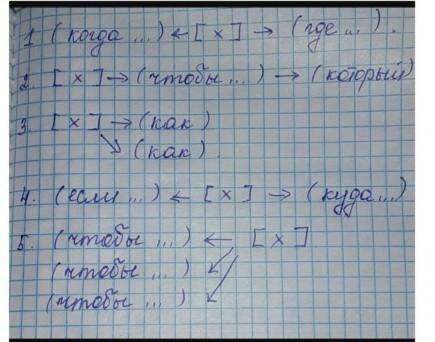 1 (когда ...) ← [ x ] → (где ...).
2. [ x ] → (чтобы ...) → (который)
3. [ x ] → (как)
↘ (как).
4. (если ...) ← [ x ] → (куда ...)
5. (чтобы ...) ← [ x ]
(чтобы ...) ↙
(чтобы ...) ↙